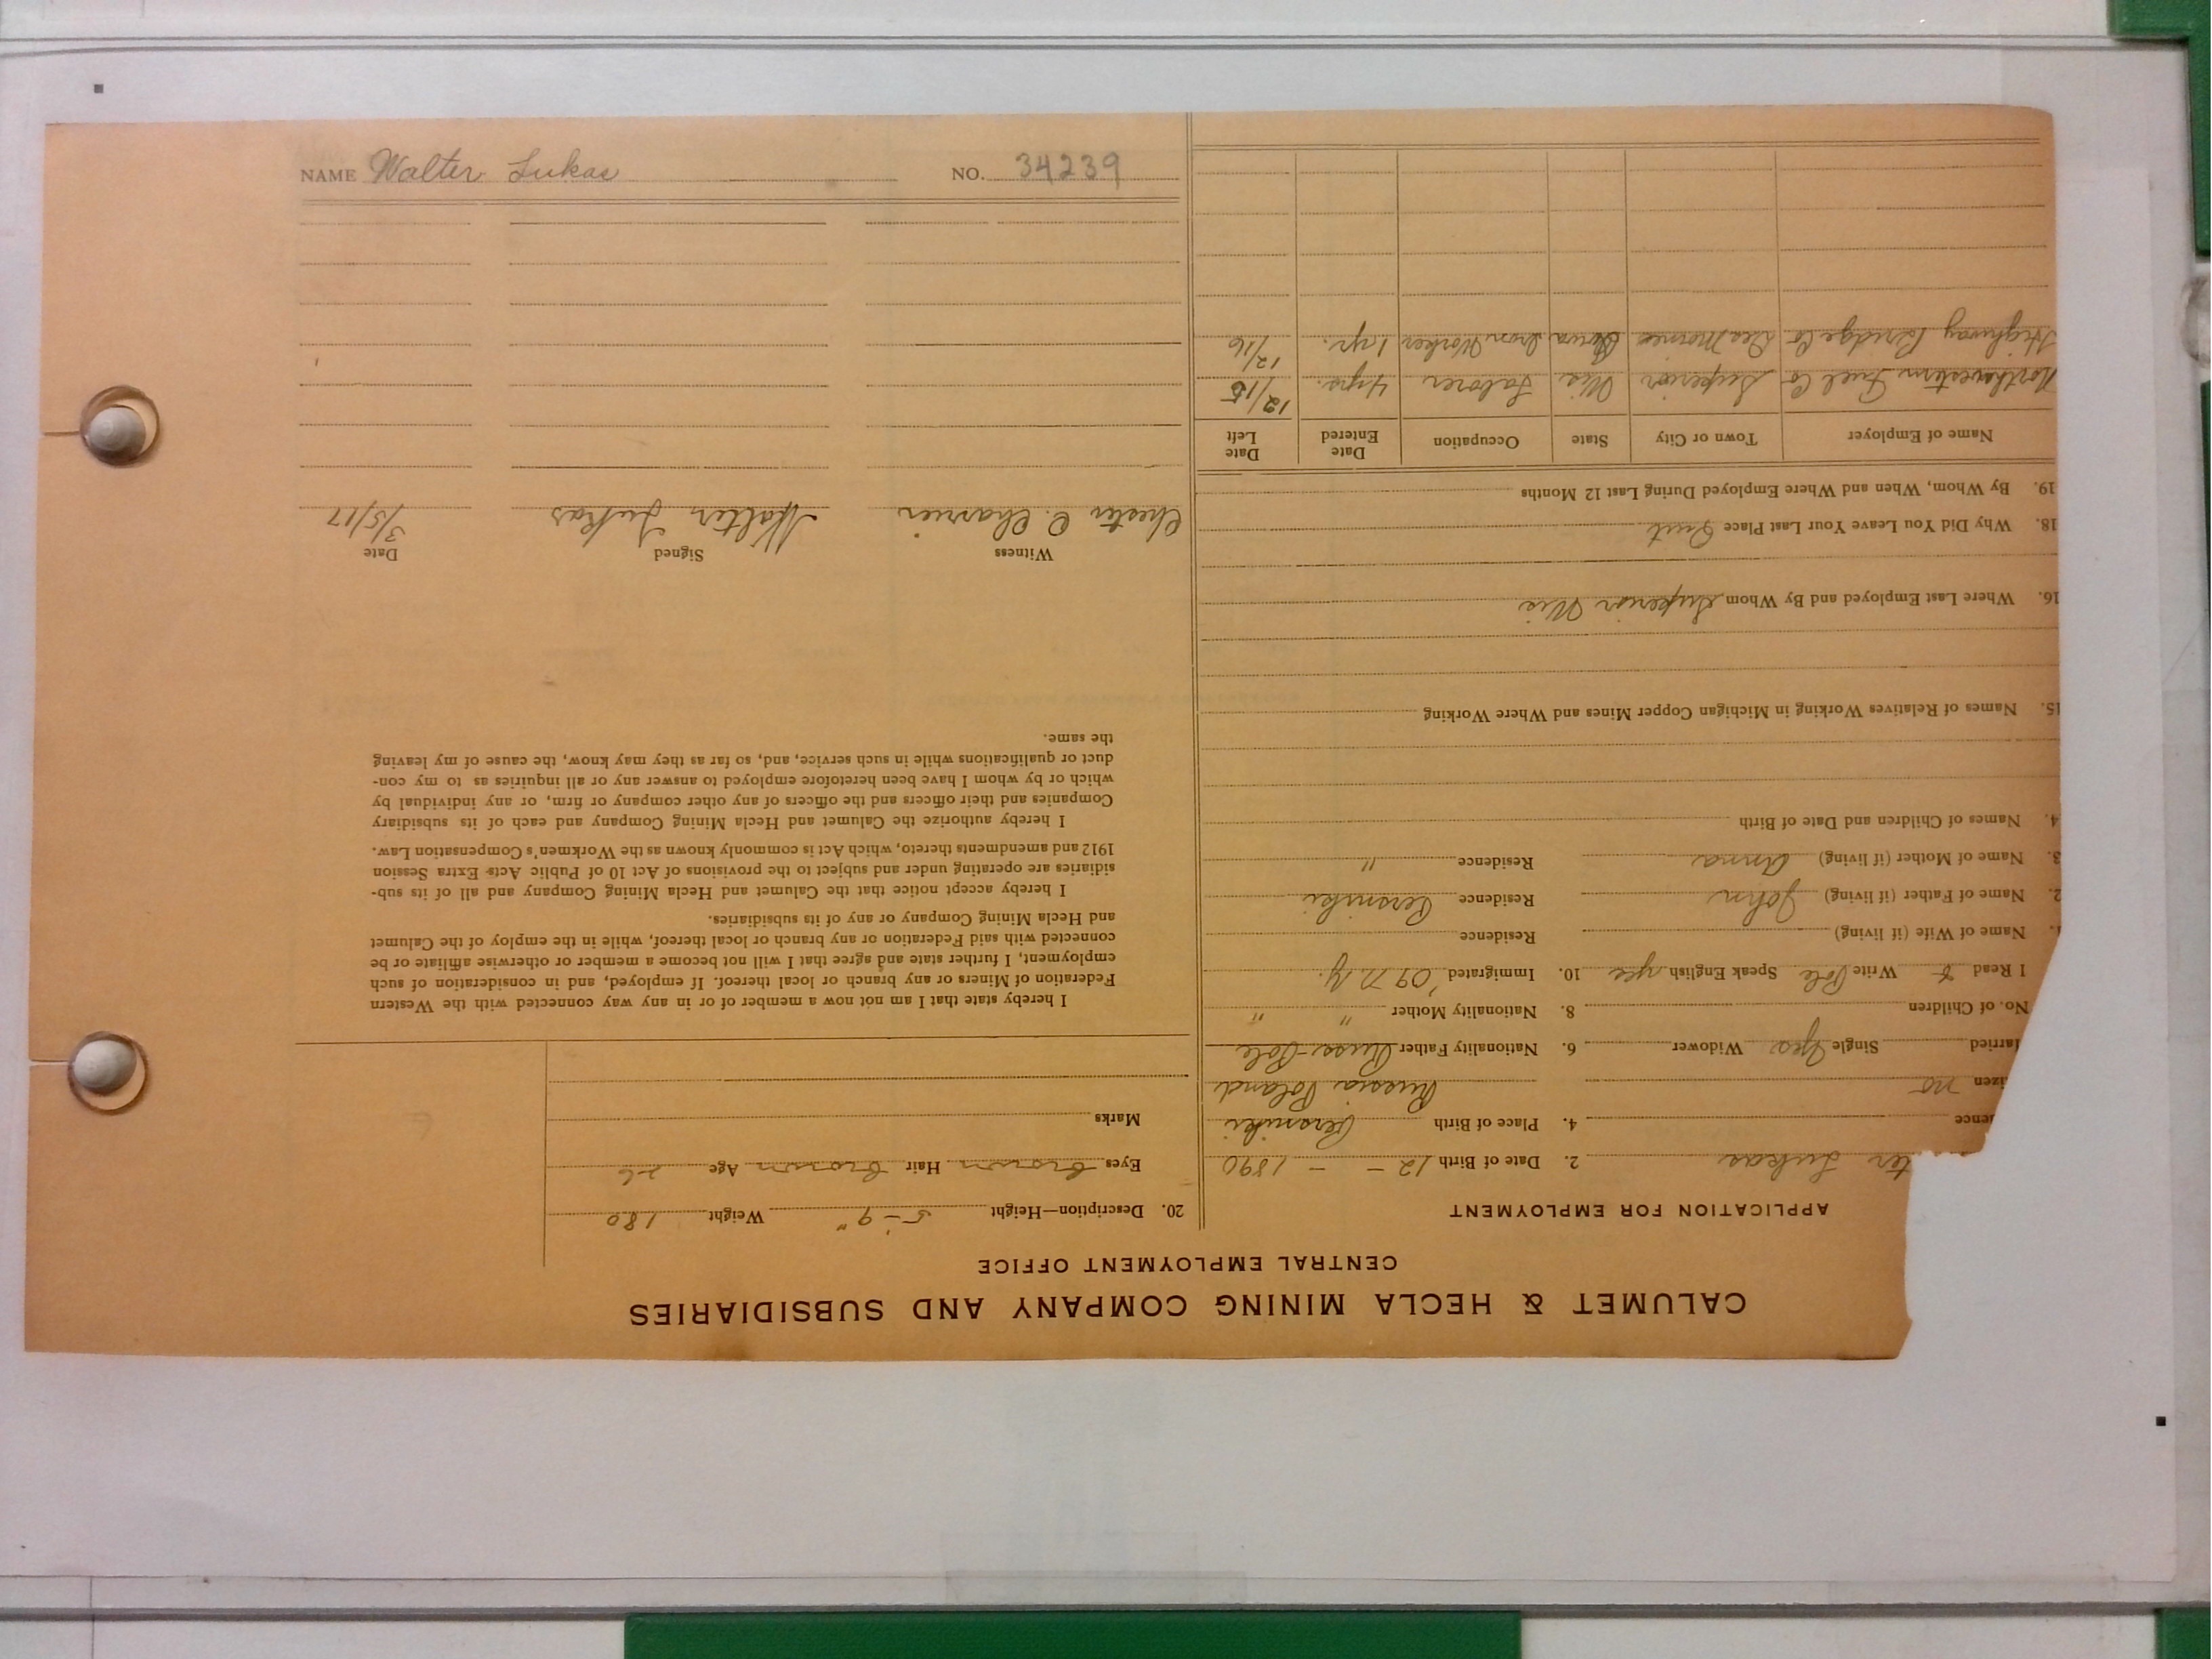 CALUMET & HECLA MINING COMPANY AND SUBSIDIARIES
CENTRAL EMPLOYMENT OFFICE
APPLICATION FOR EMPLOYMENT
ter Lukas 2. Date of Birth 12 - - 1890
ence 4. Place of Birth
izen no Russia Poland
arried Single Yes Widower 6. Nationality Father Russ-Pole
No. of Children 8. Nationality Mother " "
I Read & Write Pole Speak English yes 10. Immigrated '09 N.Y.
1. Name of Wife (if living) Residence
2. Name of Father (if living) John Residence
3. Name of Mother (if living) Anna Residence "
4. Names of Children and Date of Birth
15. Names of Relatives Working in Michigan Copper Mines and Where Working
16. Where Last Employed and By Whom Superior Wis
18. Why Did You Leave Your Last Place Quit
19. By Whom, When and Where Employed During Last 12 Months
Name of Employer Town or City State Occupation Date Entered Date Left
Northwestern Fuel Co Superior Wis Laborer 4 yrs. 12/15
Highway Bridge Co Des Moines Iowa Iron Worker 1 yr. 12/16
20. Description—Height 5-9" Weight 180
Eyes Brown Hair Brown Age 26
Marks
I hereby state that I am not now a member of or in any way connected with the Western
Federation of Miners or any branch or local thereof. If employed, and in consideration of such
employment, I further state and agree that I will not become a member or otherwise affiliate or be
connected with said Federation or any branch or local thereof, while in the employ of the Calumet
and Hecla Mining Company or any of its subsidiaries.
I hereby accept notice that the Calumet and Hecla Mining Company and all of its sub-
sidiaries are operating under and subject to the provisions of Act 10 of Public Acts Extra Session
1912 and amendments thereto, which Act is commonly known as the Workmen's Compensation Law.
I hereby authorize the Calumet and Hecla Mining Company and each of its subsidiary
Companies and their officers and the officers of any other company or firm, or any individual by
which or by whom I have been heretofore employed to answer any or all inquiries as to my con-
duct or qualifications while in such service, and, so far as they may know, the cause of my leaving
the same.
Witness Signed Date
Chester C. Charrier Walter Lukas 3/5/17
NAME Walter Lukas NO. 34239